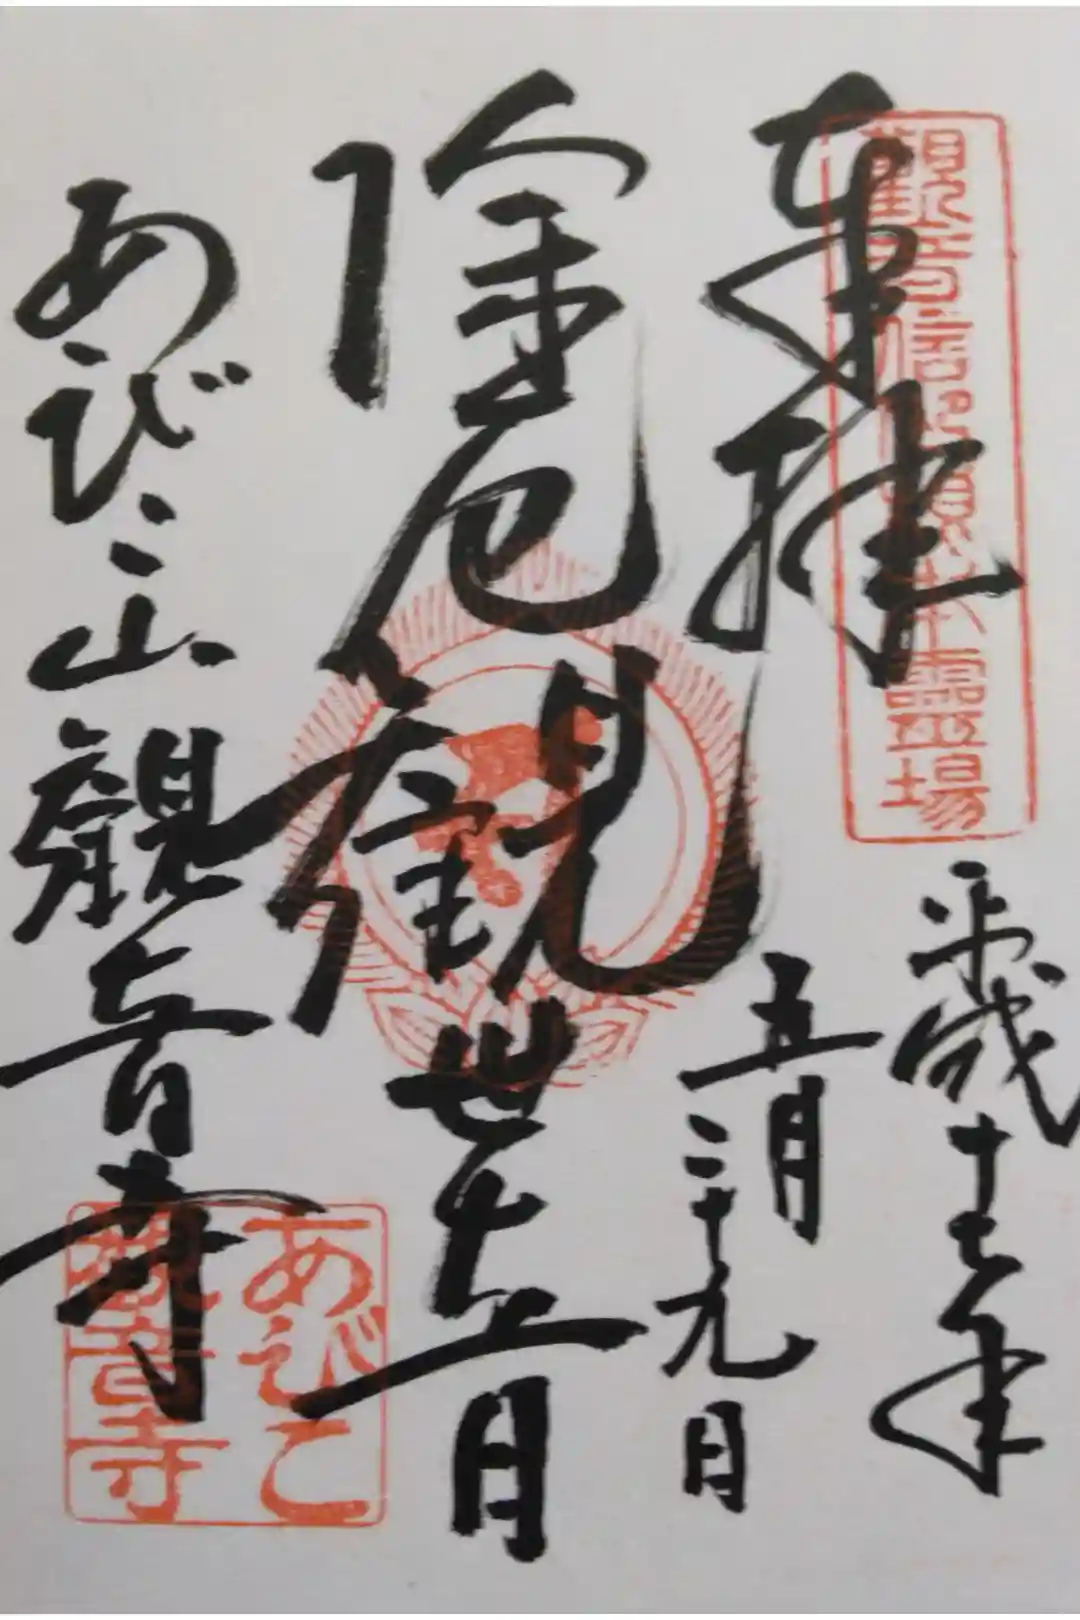 觀音信仰根本靈場
奉拝
平成十七年
五月二十九日
除厄観世音
あびこ山観音寺
あびこ
観音寺